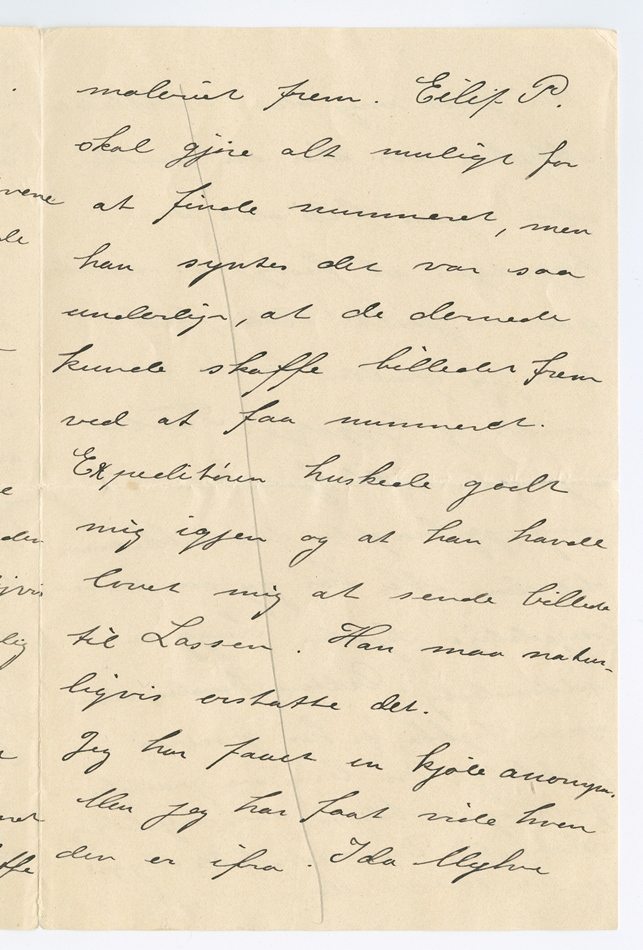 maleriet frem. Eilif P.
skal gjøre alt muligt for
at finde nummeret, men
han syntes det var saa
underligt, at de dernede
kunde skaffe billedet frem
ved at faa nummeret.
Expeditøren huskede godt
mig igjen og at han havde
lovet mig at sende billedet
til Lassen. Han maa natur-
ligvis erstatte det.
Jeg har faaet en kjole anonym.
Men jeg har faat vide hvem
den er ifra. Ida
vene
de
e
den
ivis
lig
ffe